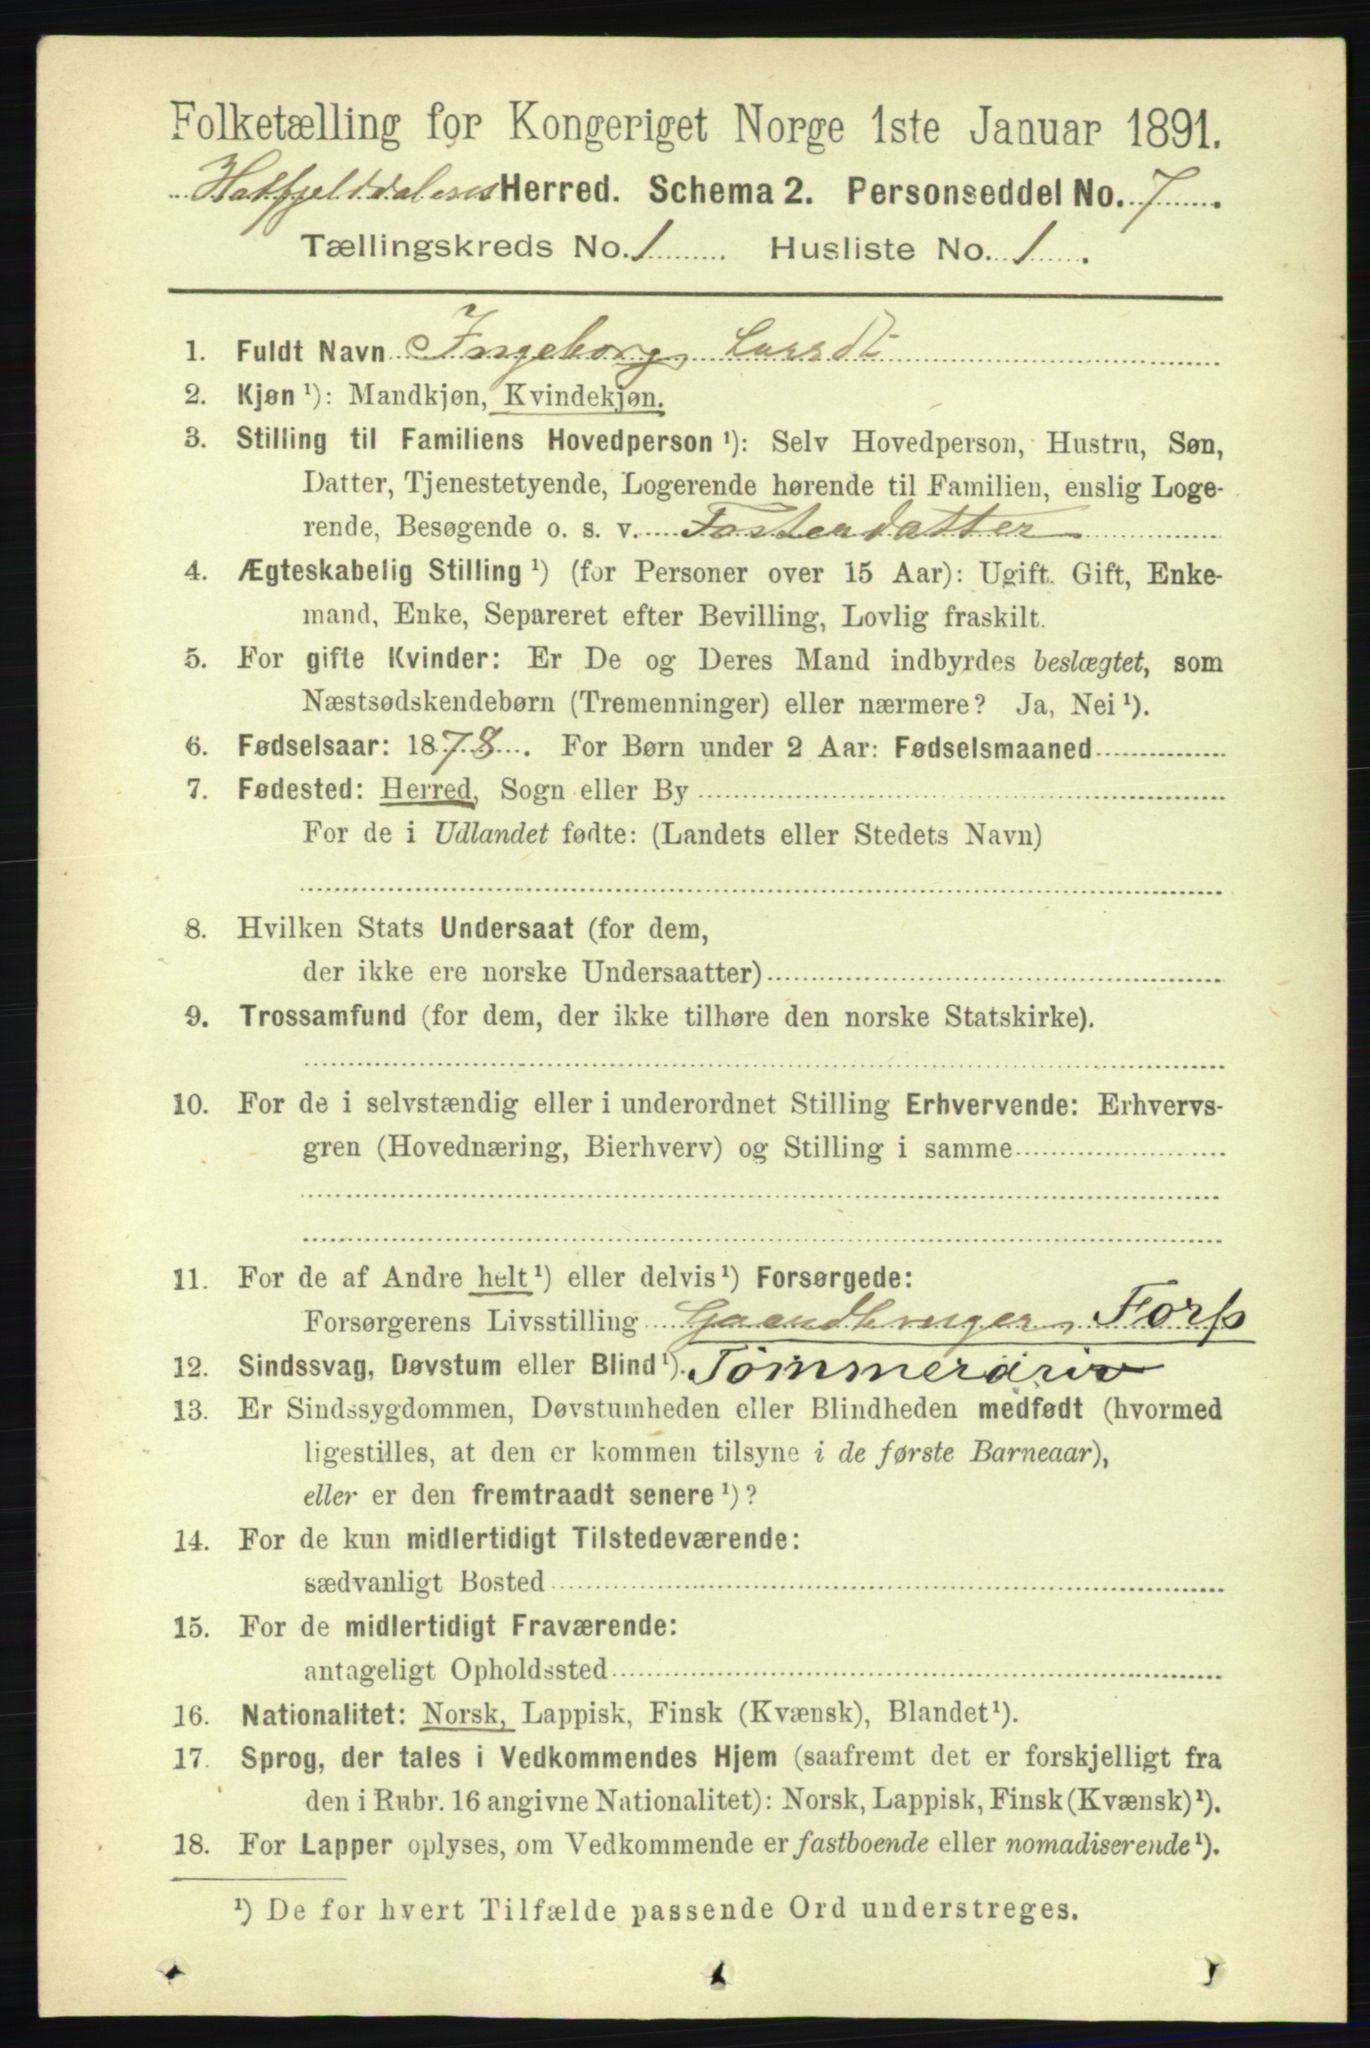 Folketælling for Kongeriget Norge 1ste Januar 1891.
Hatfjelddalens Herred. Schema 2. Personseddel No. 7.
Tællingskreds No. 1 Husliste No. 1.
1. Fuldt Navn Ingeborg Larsdt.
2. Kjøn ¹): Mandkjøn, Kvindekjøn.
3. Stilling til Familiens Hovedperson ¹): Selv Hovedperson, Hustru, Søn,
Datter, Tjenestetyende, Logerende hørende til Familien, enslig Loge-
rende, Besøgende o. s. v. Fosterdatter
4. Ægteskabelig Stilling ¹) (for Personer over 15 Aar): Ugift. Gift, Enke-
mand, Enke, Separeret efter Bevilling, Lovlig fraskilt.
5. For gifte Kvinder: Er De og Deres Mand indbyrdes beslægtet, som
Næstsødskendebørn (Tremenninger) eller nærmere? Ja, Nei ¹).
6. Fødselsaar: 1878. For Børn under 2 Aar: Fødselsmaaned
7. Fødested: Herred, Sogn eller By
For de i Udlandet fødte: (Landets eller Stedets Navn)
8. Hvilken Stats Undersaat (for dem,
der ikke ere norske Undersaatter)
9. Trossamfund (for dem, der ikke tilhøre den norske Statskirke).
10. For de i selvstændig eller i underordnet Stilling Erhvervende: Erhvervs-
gren (Hovednæring, Bierhverv) og Stilling i samme
11. For de af Andre helt ¹) eller delvis ¹) Forsørgede:
Forsørgerens Livsstilling Gaardbruger,
12. Sindssvag, Døvstum eller Blind ¹). Tømmerdriv
13. Er Sindssygdommen, Døvstumheden eller Blindheden medfødt (hvormed
ligestilles, at den er kommen tilsyne i de første Barneaar),
eller er den fremtraadt senere ¹)?
14. For de kun midlertidigt Tilstedeværende:
sædvanligt Bosted
15. For de midlertidigt Fraværende:
antageligt Opholdssted
16. Nationalitet: Norsk, Lappisk, Finsk (Kvænsk), Blandet ¹).
17. Sprog, der tales i Vedkommendes Hjem (saafremt det er forskjelligt fra
den i Rubr. 16 angivne Nationalitet): Norsk, Lappisk, Finsk (Kvænsk) ¹).
18. For Lapper oplyses, om Vedkommende er fastboende eller nomadiserende ¹).
¹) De for hvert Tilfælde passende Ord understreges.